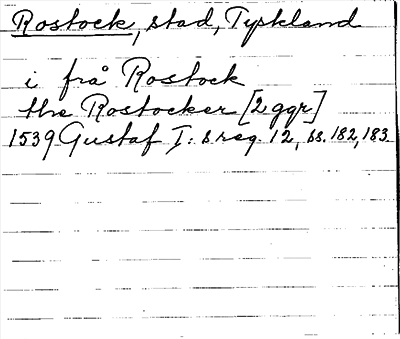 Rostock, stad, Tyskland
i frå Rostock
the Rostocker [2 ggr]
1539 Gustaf I:s reg. 12, ss. 182, 183.